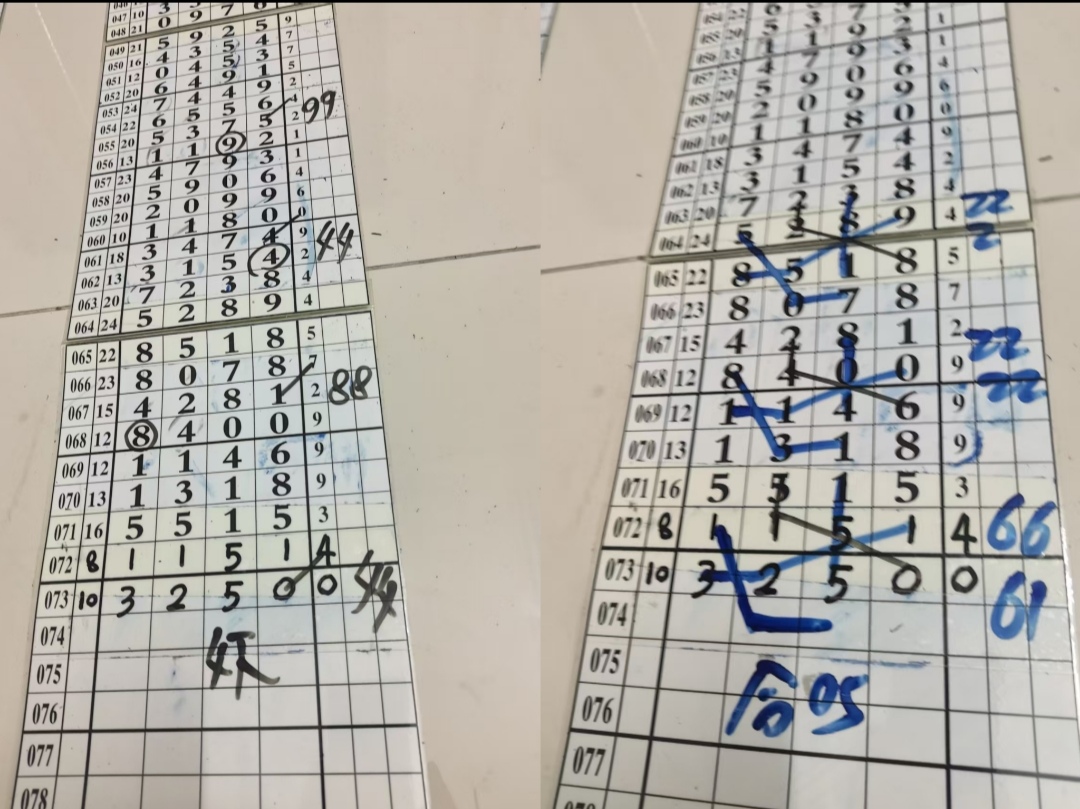 047 10
048 21 0 9 7
049 21 5 9 2 5 9
050 16 4 3 5 4 7
051 12 0 4 5 3 7
052 20 6 4 9 1 5
053 24 7 4 4 9 2
054 22 6 5 5 6 4 99
055 20 5 3 7 5 2
056 13 1 1 9 2 1
057 23 4 7 9 3 1
058 20 5 9 0 6 4
059 20 2 0 9 9 6
060 10 1 1 8 0 0
061 18 3 4 7 4 9 44
062 13 3 1 5 4 2
063 20 7 2 3 8 4
064 24 5 2 8 9 4
065 22 8 5 1 8 5
066 23 8 0 7 8 7
067 15 4 2 8 1 2 88
068 12 8 4 0 0 9
069 12 1 1 4 6 9
070 13 1 3 1 8 9
071 16 5 5 1 5 3
072 8 1 1 5 1 4
073 10 3 2 5 0 0 44
074
075
076
077
078
055 20
056 13 1 1 9 2 1
057 23 4 7 9 3 1
058 20 5 9 0 6 4
059 20 2 0 9 9 6
060 10 1 1 8 0 0
061 18 3 4 7 4 9
062 13 3 1 5 4 2
063 20 7 2 3 8 4 22
064 24 5 2 8 9 4 2
065 22 8 5 1 8 5
066 23 8 0 7 8 7
067 15 4 2 8 1 2 22
068 12 8 4 0 0 9 22
069 12 1 1 4 6 9
070 13 1 3 1 8 9
071 16 5 5 1 5 3
072 8 1 1 5 1 4 66
073 10 3 2 5 0 0 61
074
075
076
077